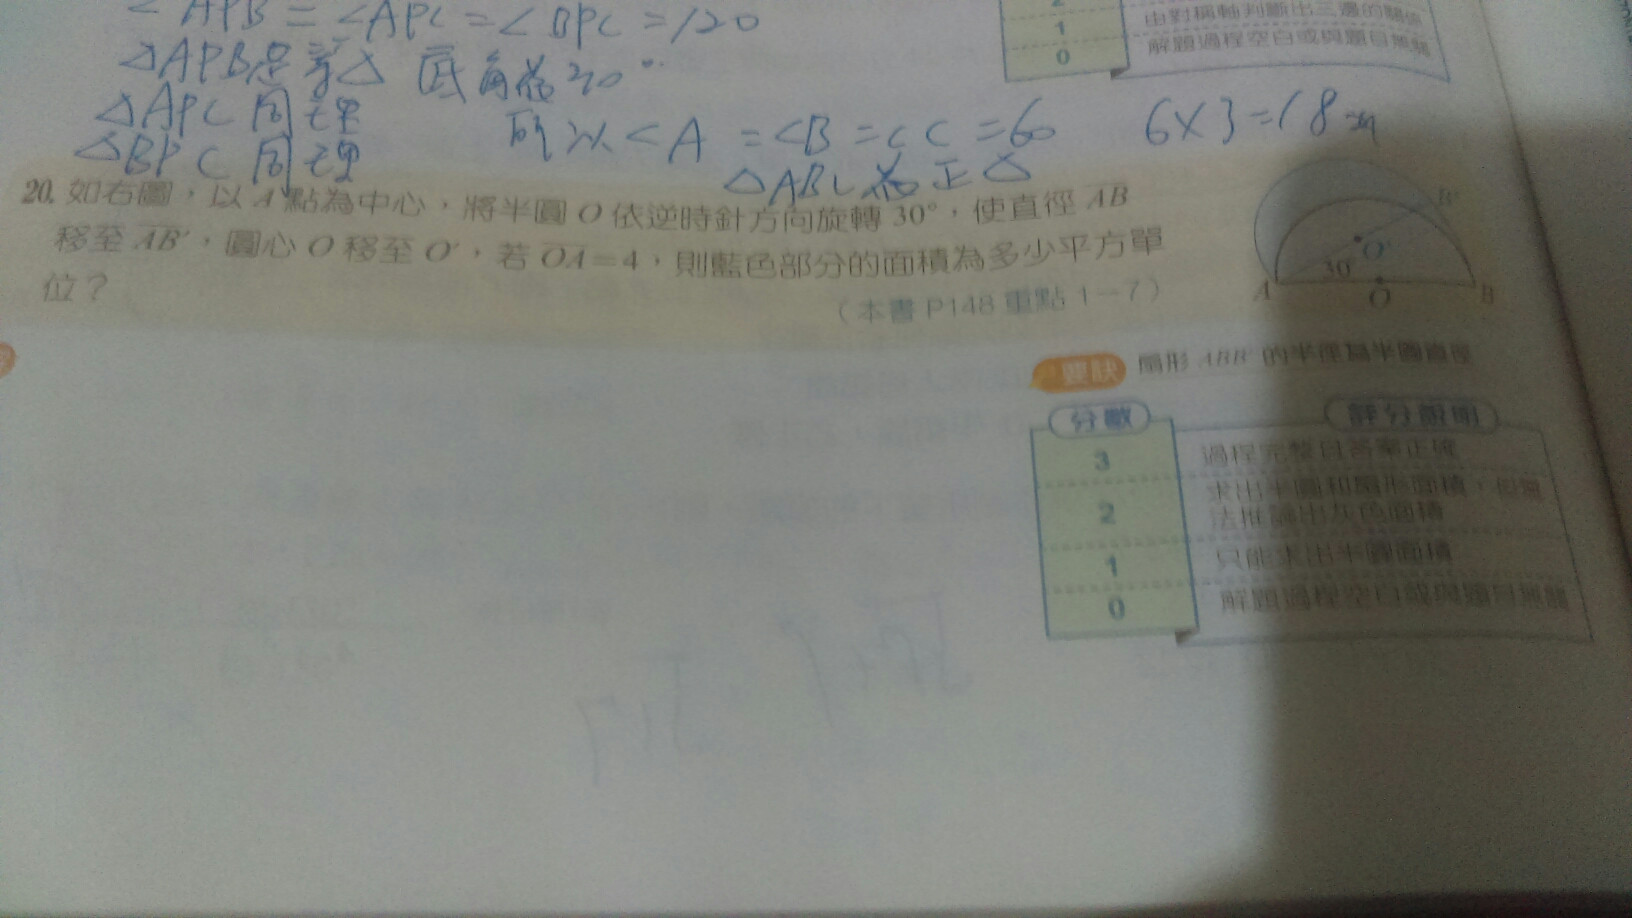 <APB = <APC = <BPC = 120
△APB是等△ 底角為30°
△APC 同理
△BPC 同理
所以 <A = <B = <C = 60
△ABC 為正△
6×3=18
由對稱軸判斷出三邊的關係
1
解題過程空白或與題目無關
0
20. 如右圖，以 A 點為中心，將半圓 O 依逆時針方向旋轉 30°，使直徑 AB
移至 AB'，圓心 O 移至 O'，若 OA=4，則藍色部分的面積為多少平方單
位？
（本書 P148 重點 1－7）
B'
O'
30°
A
O
B
要訣 扇形 ABB' 的半徑為半圓直徑
分數 評分說明
3 過程完整且答案正確
2 求出半圓和扇形面積，但無
法推論出灰色面積
1 只能求出半圓面積
0 解題過程空白或與題目無關